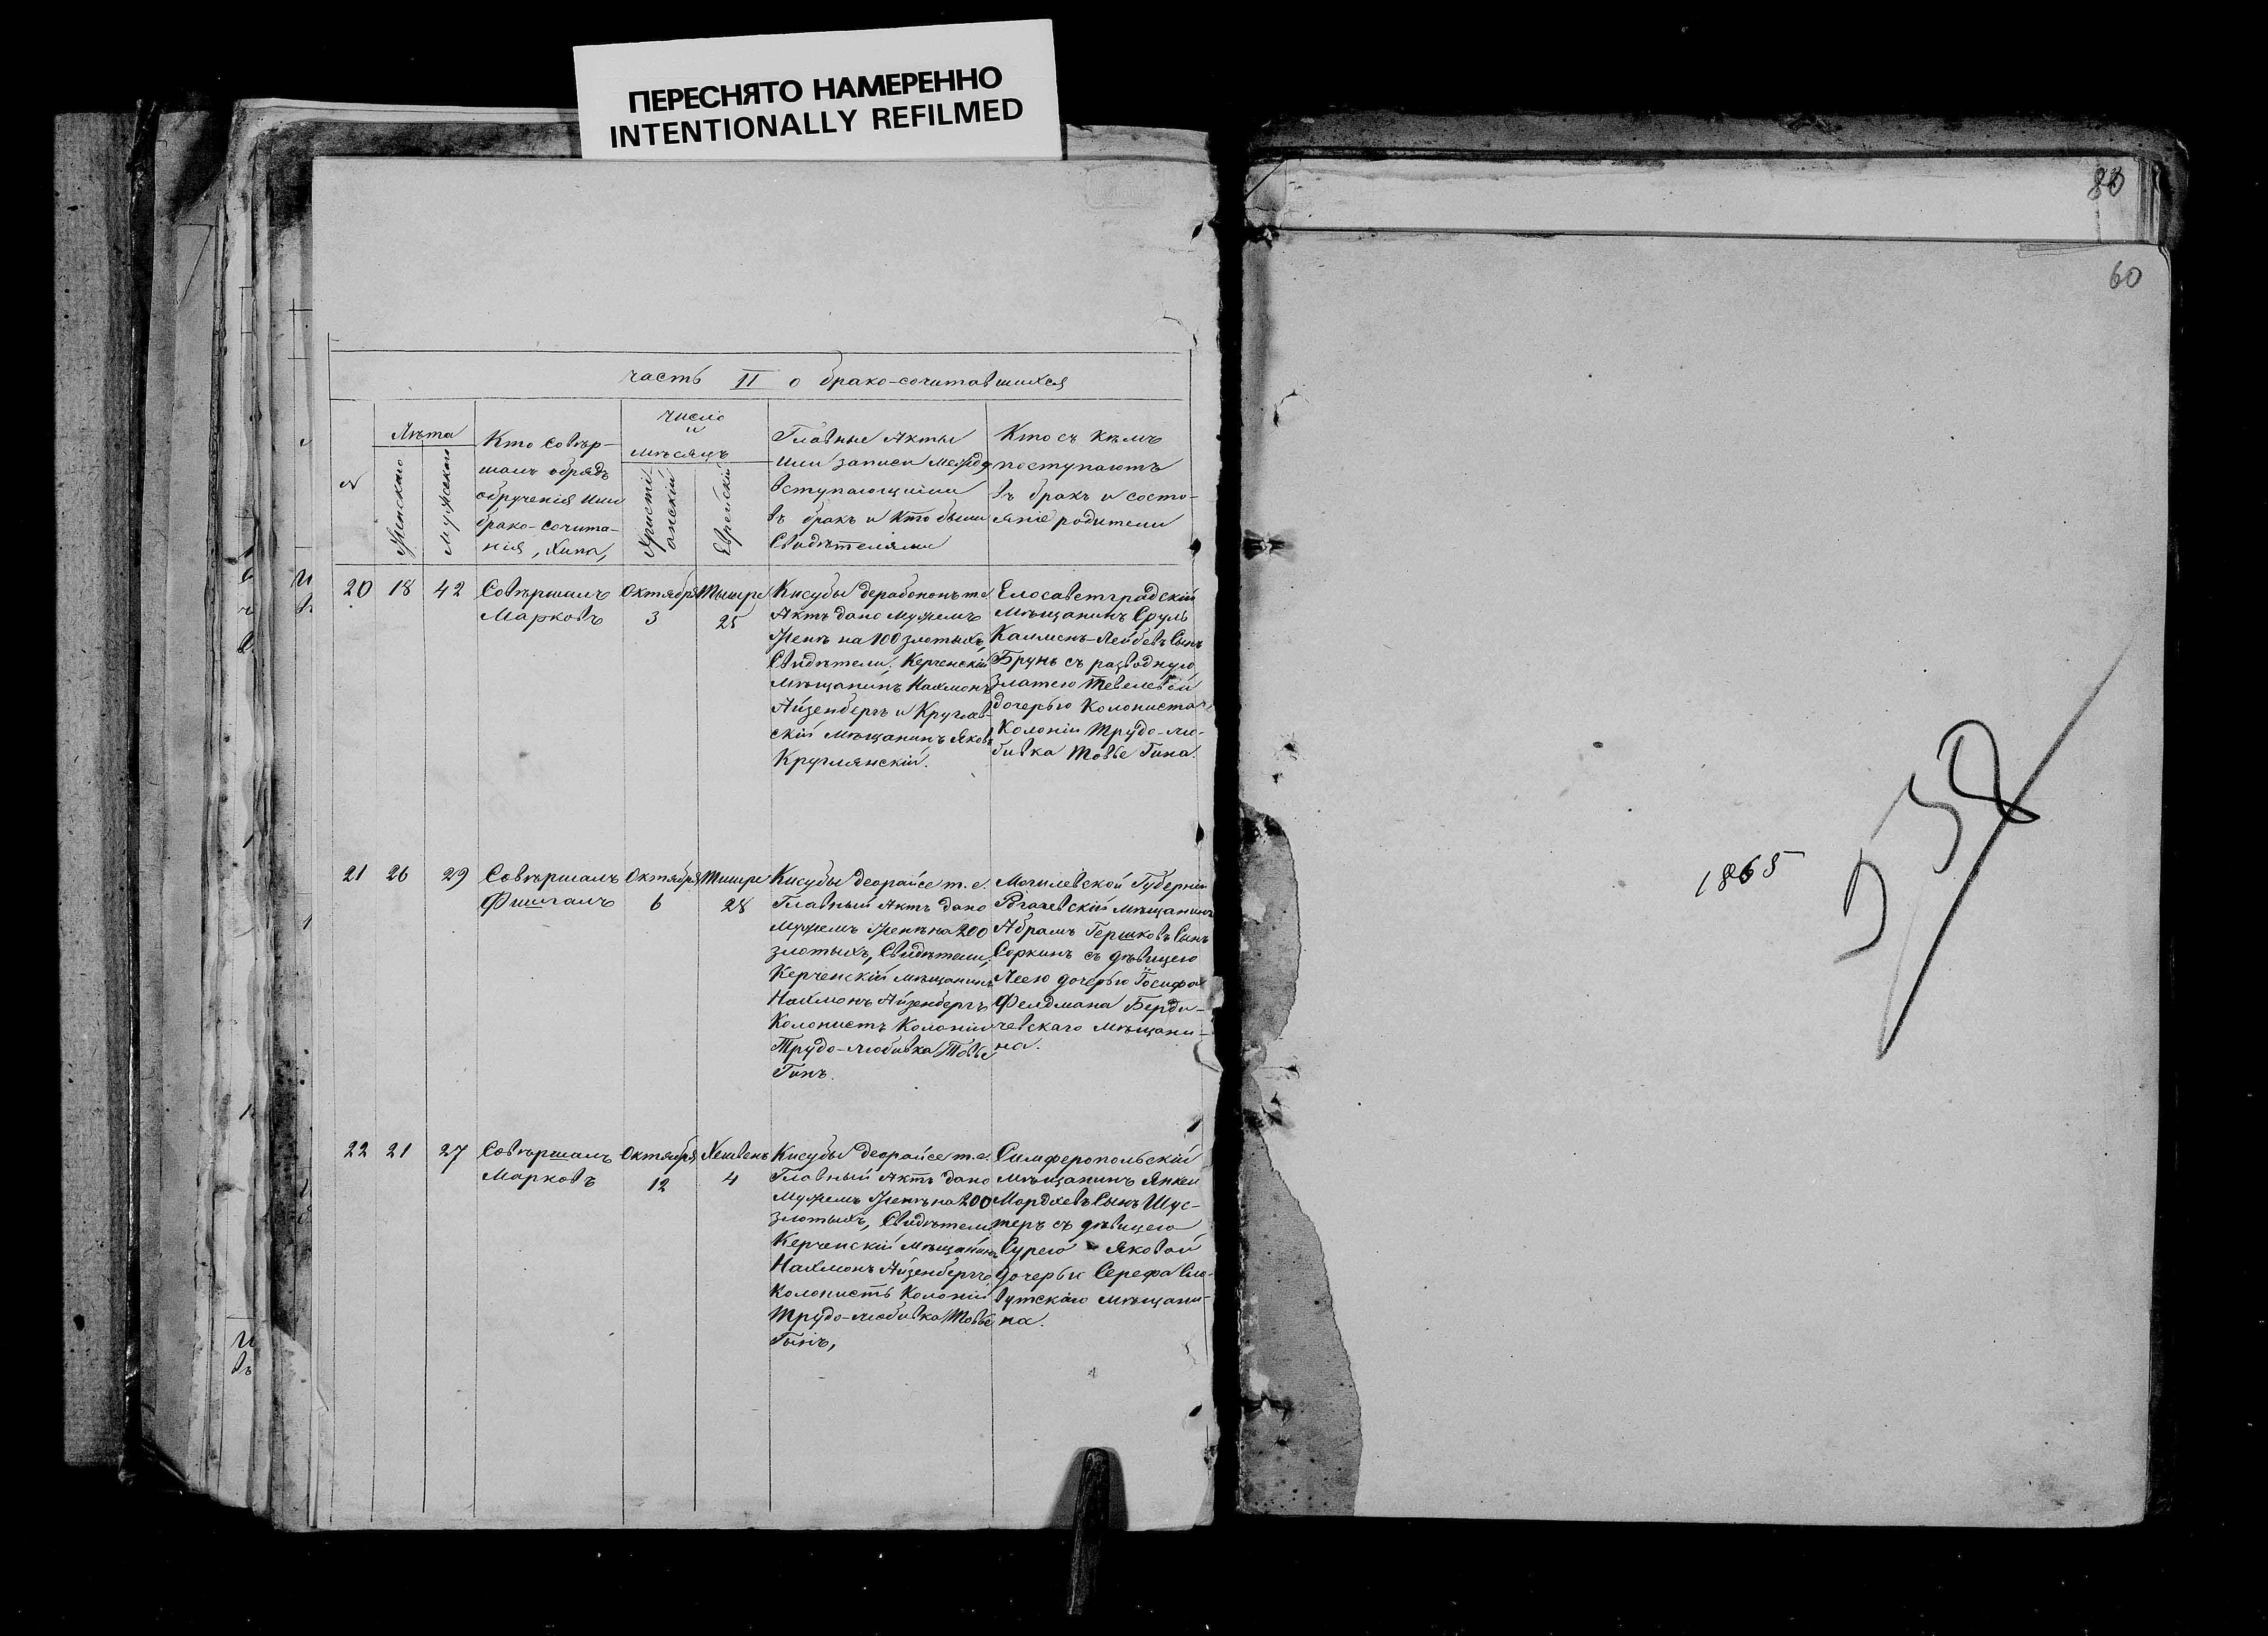 ПЕРЕСНЯТО НАМЕРЕННО
INTENTIONALLY REFILMED
80
60
часть II о брако-сочитавшихся
№
Лѣта
Женского
Мужеского
Кто совѣр-
шалъ обрядъ
обрученія или
брако-сочита-
нія, хипа,
число
и
мѣсяцъ
Христі
анскій
Еврейскій
Главные Акты
или записи между
вступающими
въ бракъ и Кто были
Свидѣтелями
Кто съ кѣмъ
поступаютъ
въ бракъ и состо-
яніе родители
20 18 42
Совѣршалъ
Марковъ
Октября
3
Тышре
25
Кисубы дерабононъ т.е
Актъ дано мужемъ
Женѣ на 100 злотыхъ,
Свидѣтели: Керченскій
мѣщанинъ Нахмонъ
Айзенбергъ и Круглян-
скій мѣщанинъ Яковъ
Круглянскій.
Елосаветградскій
мѣщанинъ Сруль
Калмонъ-Лейбевъ Сынъ
Брунь съ разводную
Златею Тевелевой
дочерью Колониста
Колоніи Трудо-лю-
бивка Товье Гина.
21 26 29
Совѣршалъ
Фишгалъ
Октября
6
Тишре
28
Кисубы деорайсе т.е.
Главный Актъ дано
мужемъ Женѣ на 200
злотыхъ, Свидѣтели,
Керченскій мѣщанинъ
Нахмонъ Айзенбергъ
Колонистъ Колоніи
Трудо-любивка Товье
Гинъ.
Могилевской Губерніи
Рогачевскій мѣщанинъ
Абрамъ Гершковъ Сынъ
Соркинъ съ дѣвицею
Леею дочерью Іосифа
Фелдмана Берди-
чевскаго мѣщани-
на.
22 21 27
Совѣршалъ
Марковъ
Октября
12
Хешвенъ
4
Кисубы деорайсе т.е.
Главный Актъ дано
мужемъ Женѣ на 200
злотыхъ, Свидѣтели
Керченскій мѣщанинъ
Нахмонъ Айзенбергъ
Колонистъ Колоніи
Трудо-любивка Товье
Гынъ,
Симферопольскій
мѣщанинъ Янкел
Мордхевъ Сынъ Шус-
теръ съ дѣвицею
Сурею Яковой
дочерьи Серефа Сла-
вутскаго мѣщани-
на.
1865